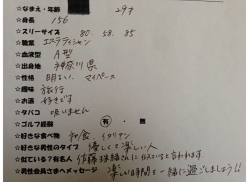 ☆なまえ・年齢 29才
☆身長 156
☆スリーサイズ 80. 58. 85
☆職業 エステティシャン
☆血液型 A型
☆出身地 神奈川県
☆性格 明るい、マイペース
☆趣味 旅行
☆お酒 好きです
☆タバコ 吸いません
☆ゴルフ経験 有・無
☆好きな食べ物 和食、イタリアン
☆好きな男性のタイプ 優しくて楽しい人
☆似ている?有名人 佐藤珠緒さんに似ていると言われます
☆男性会員さまへメッセージ 楽しい時間を一緒に過ごしましょう!!